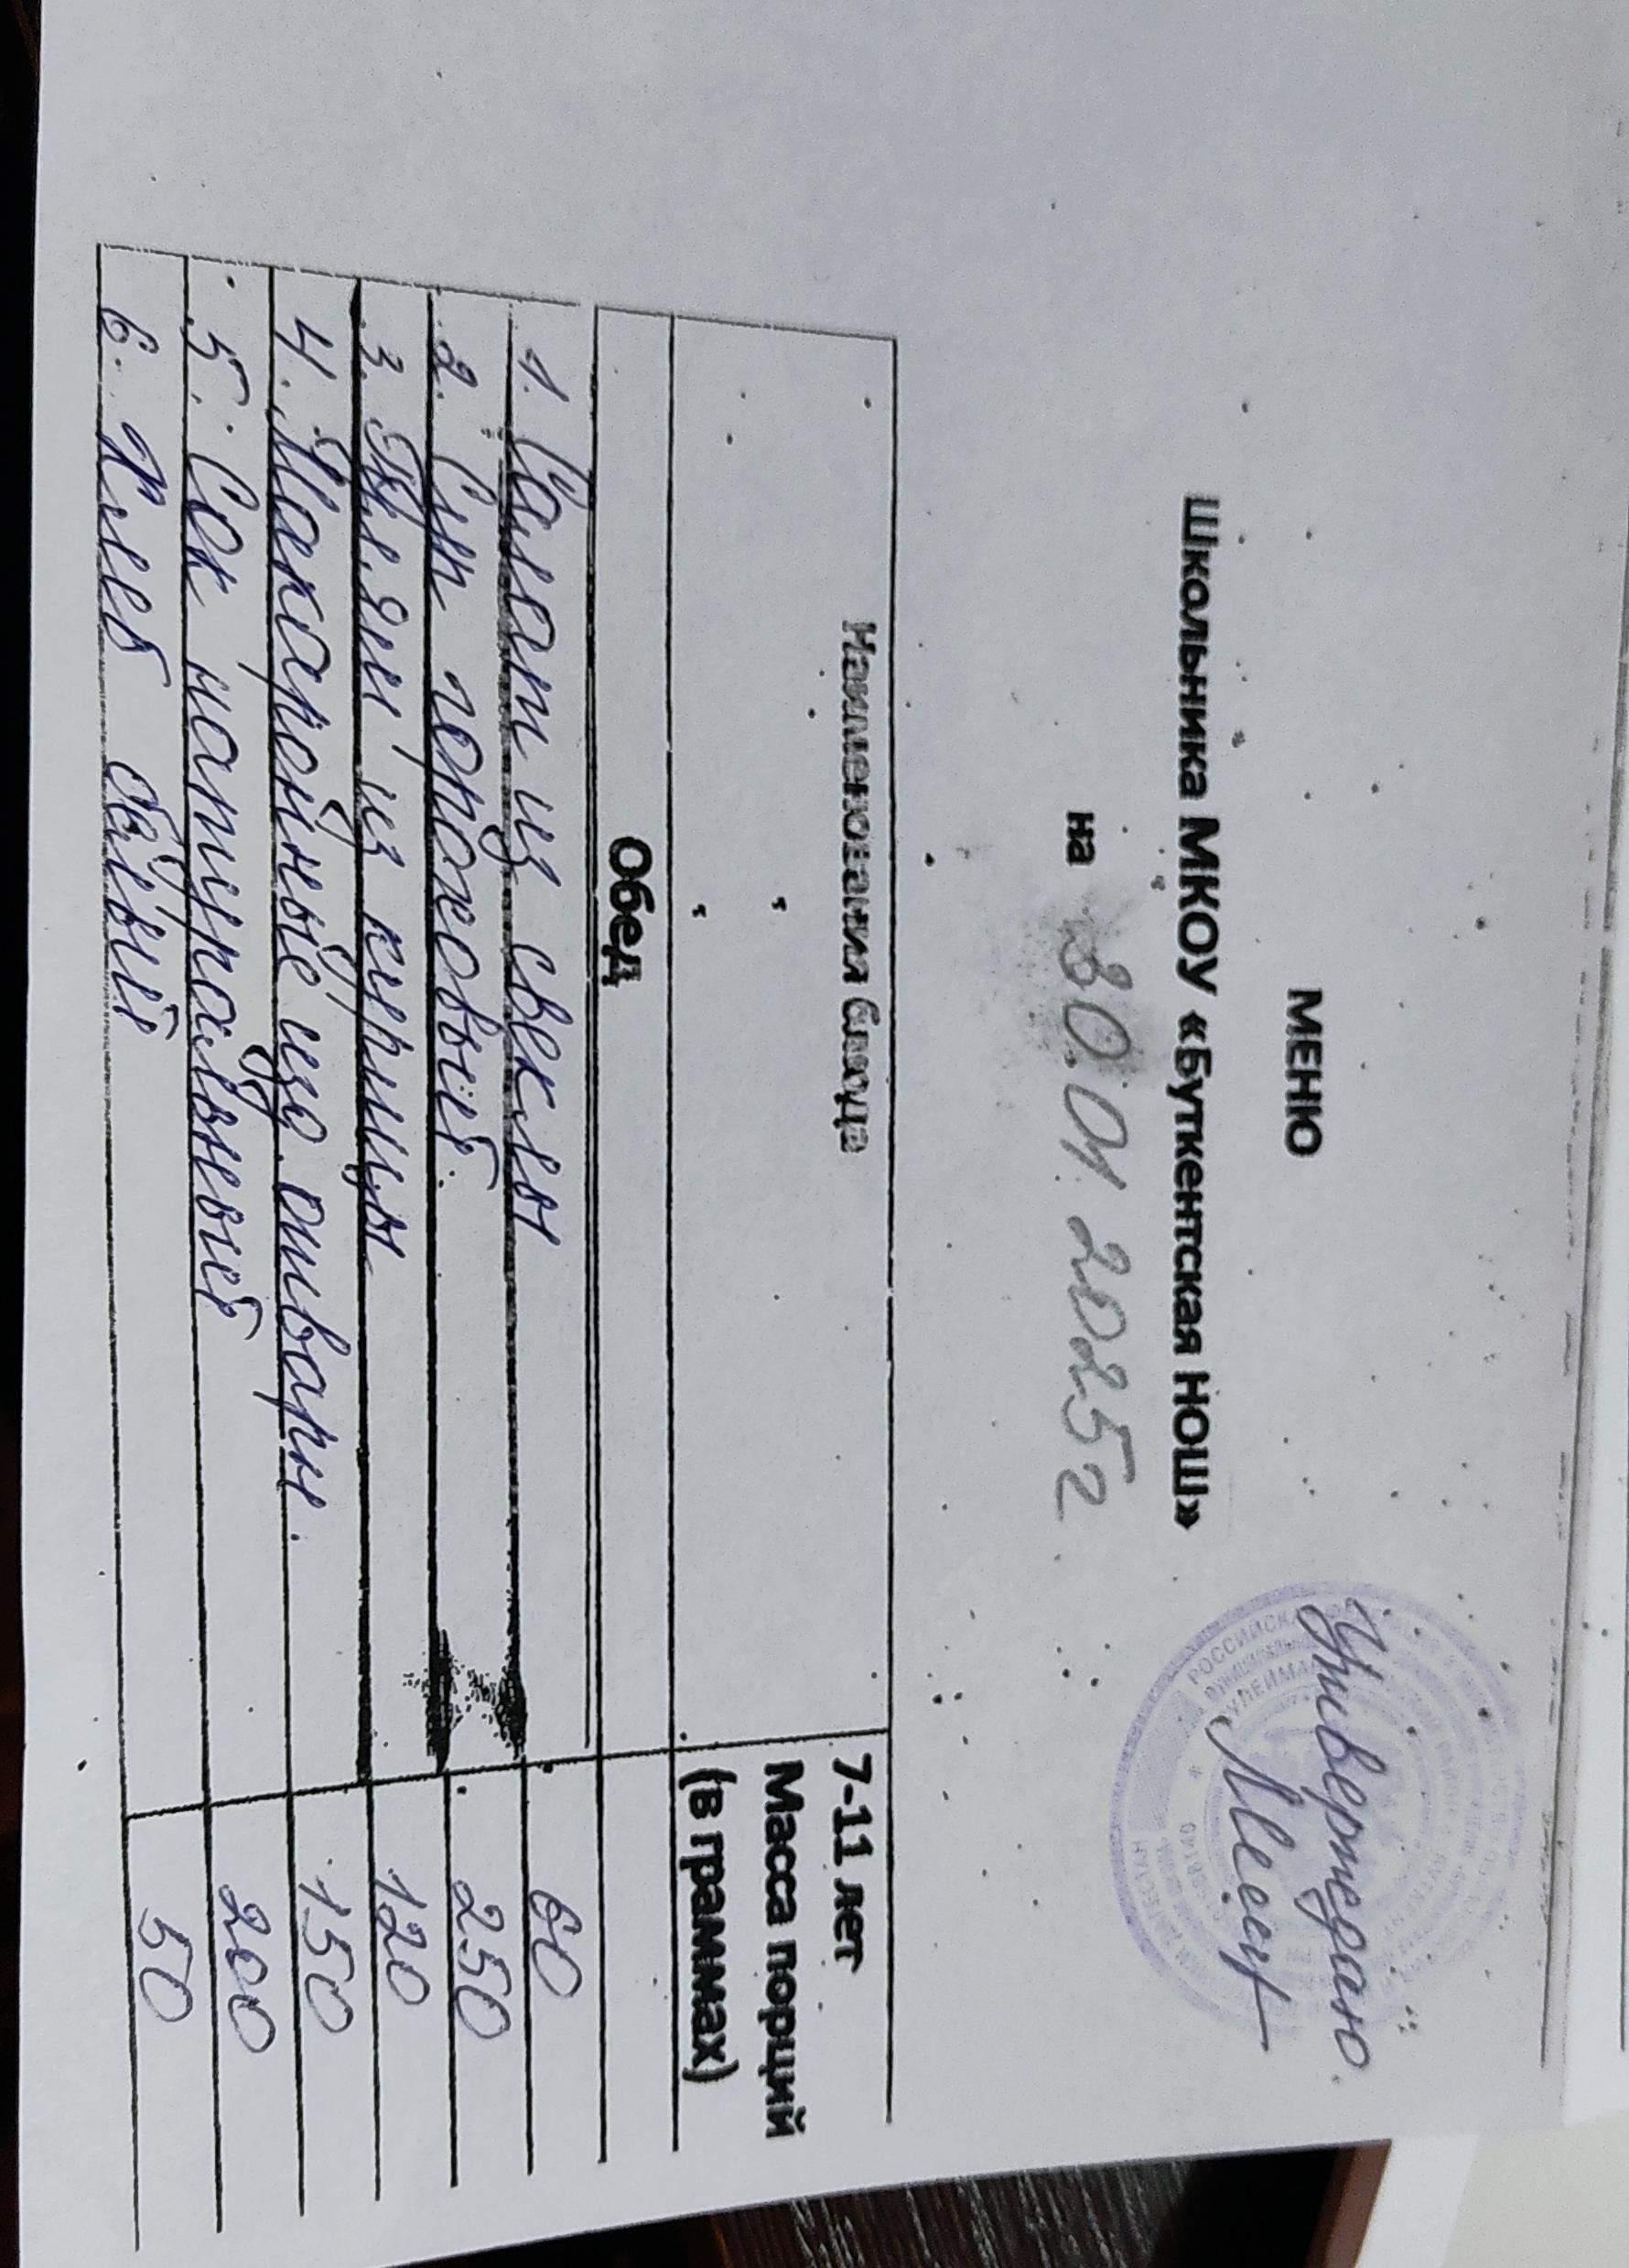 Утверждаю.
МЕНЮ
Школьника МКОУ «Буткентская НОШ»
на 30.01.2025г
Наименования блюда
7-11 лет
Масса порций
(в граммах)
Обед
1. Салат из свеклы 60
2. Суп гороховый 250
3. Гуляш из курицы 120
4. Макаронные изд. отварн. 150
5. Сок натуральный 200
6. Хлеб белый 50